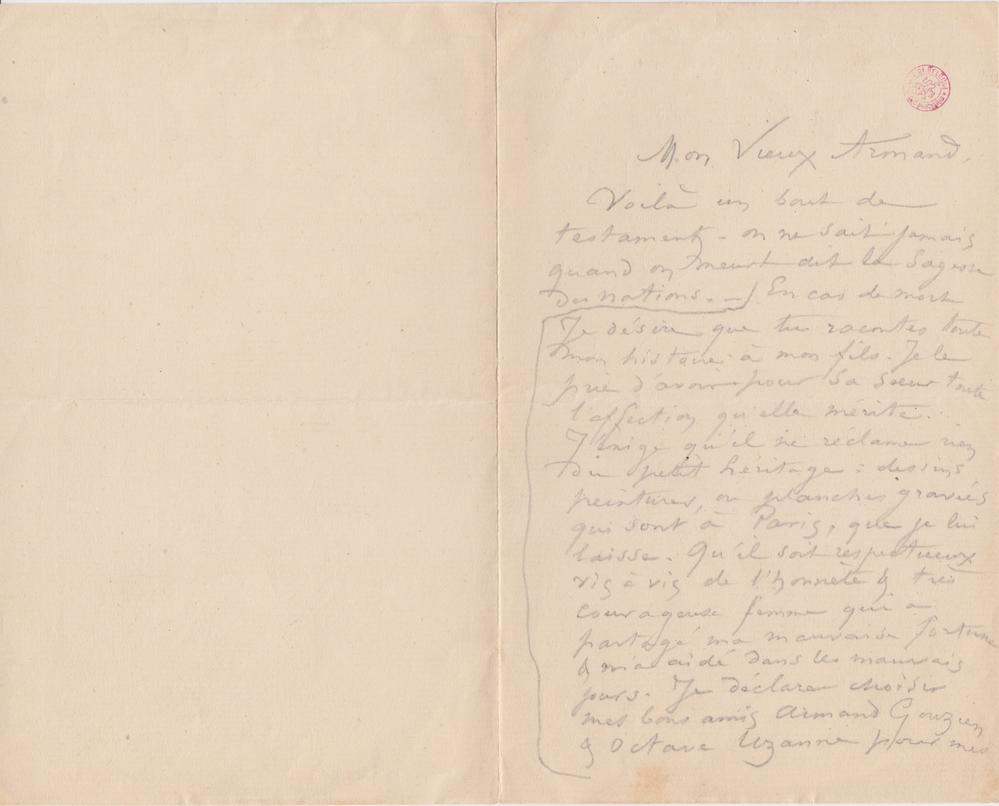 Mon Vieux Armand,
Voilà un bout de
testament - on ne sait jamais
quand on meurt dit la Sagesse
des nations. - / En cas de mort
Je désire que tu racontes toute
mon histoire à mon fils. Je le
prie d'avoir pour sa sœur toute
l'affection qu'elle mérite.
J'exige qu'il ne réclame rien
du petit héritage : dessins
peintures, ou planches gravées
qui sont à Paris, que je lui
laisse. Qu'il soit respectueux
vis à vis de l'honnête & très
courageuse femme qui a
partagé ma mauvaise fortune
& m'a aidé dans les mauvais
jours. Je déclare choisir
mes bons amis Armand Gouzien
& Octave Uzanne pour mes